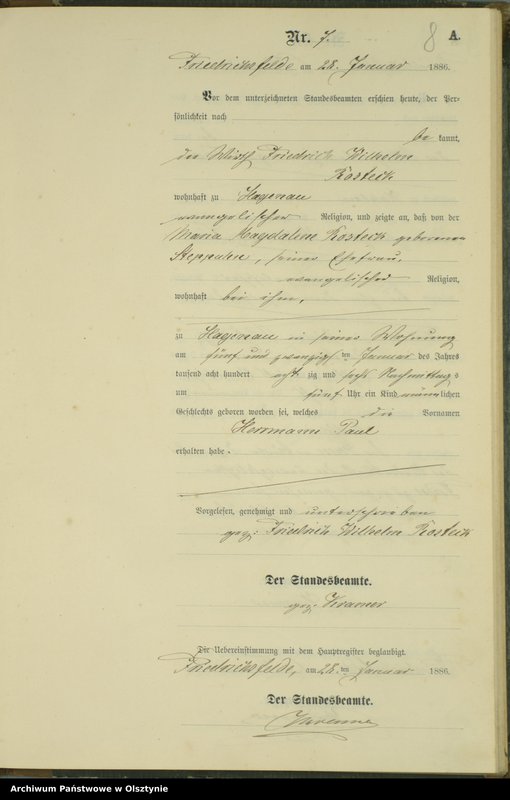 8
Nr. 7. A.
Friedrichsfelde am 28. Januar 1886.
Vor dem unterzeichneten Standesbeamten erschien heute, der Per-
sönlichkeit nach
be kannt,
der Wirth Friedrich Wilhelm
Kosteck
wohnhaft zu Hagenau
evangelischer Religion, und zeigte an, daß von der
Maria Magdalene Kosteck geborenen
seiner Ehefrau,
evangelischer Religion,
wohnhaft bei ihm,
zu Hagenau in seiner Wohnung
am fünf und zwanzigs ten Januar des Jahres
tausend acht hundert acht zig und sechs Nachmittags
um fünf Uhr ein Kind männlichen
Geschlechts geboren worden sei, welches die Vornamen
Herrmann Paul
erhalten habe.
Vorgelesen, genehmigt und unterschrieben
gez: Friedrich Wilhelm Kosteck
Der Standesbeamte.
gez. Kramer
Die Uebereinstimmung mit dem Hauptregister beglaubigt.
Friedrichsfelde, am 28. ten Januar 1886.
Der Standesbeamte.
Archiwum Państwowe w Olsztynie